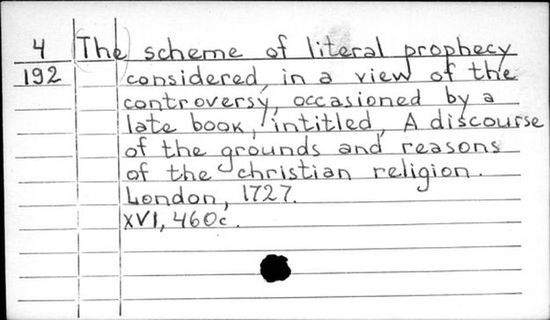 4 (The) scheme of literal prophecy
192 considered, in a view of the
controversy, occasioned by a
late book, intitled, A discourse
of the grounds and reasons
of the christian religion.
London, 1727.
XVI, 460c.